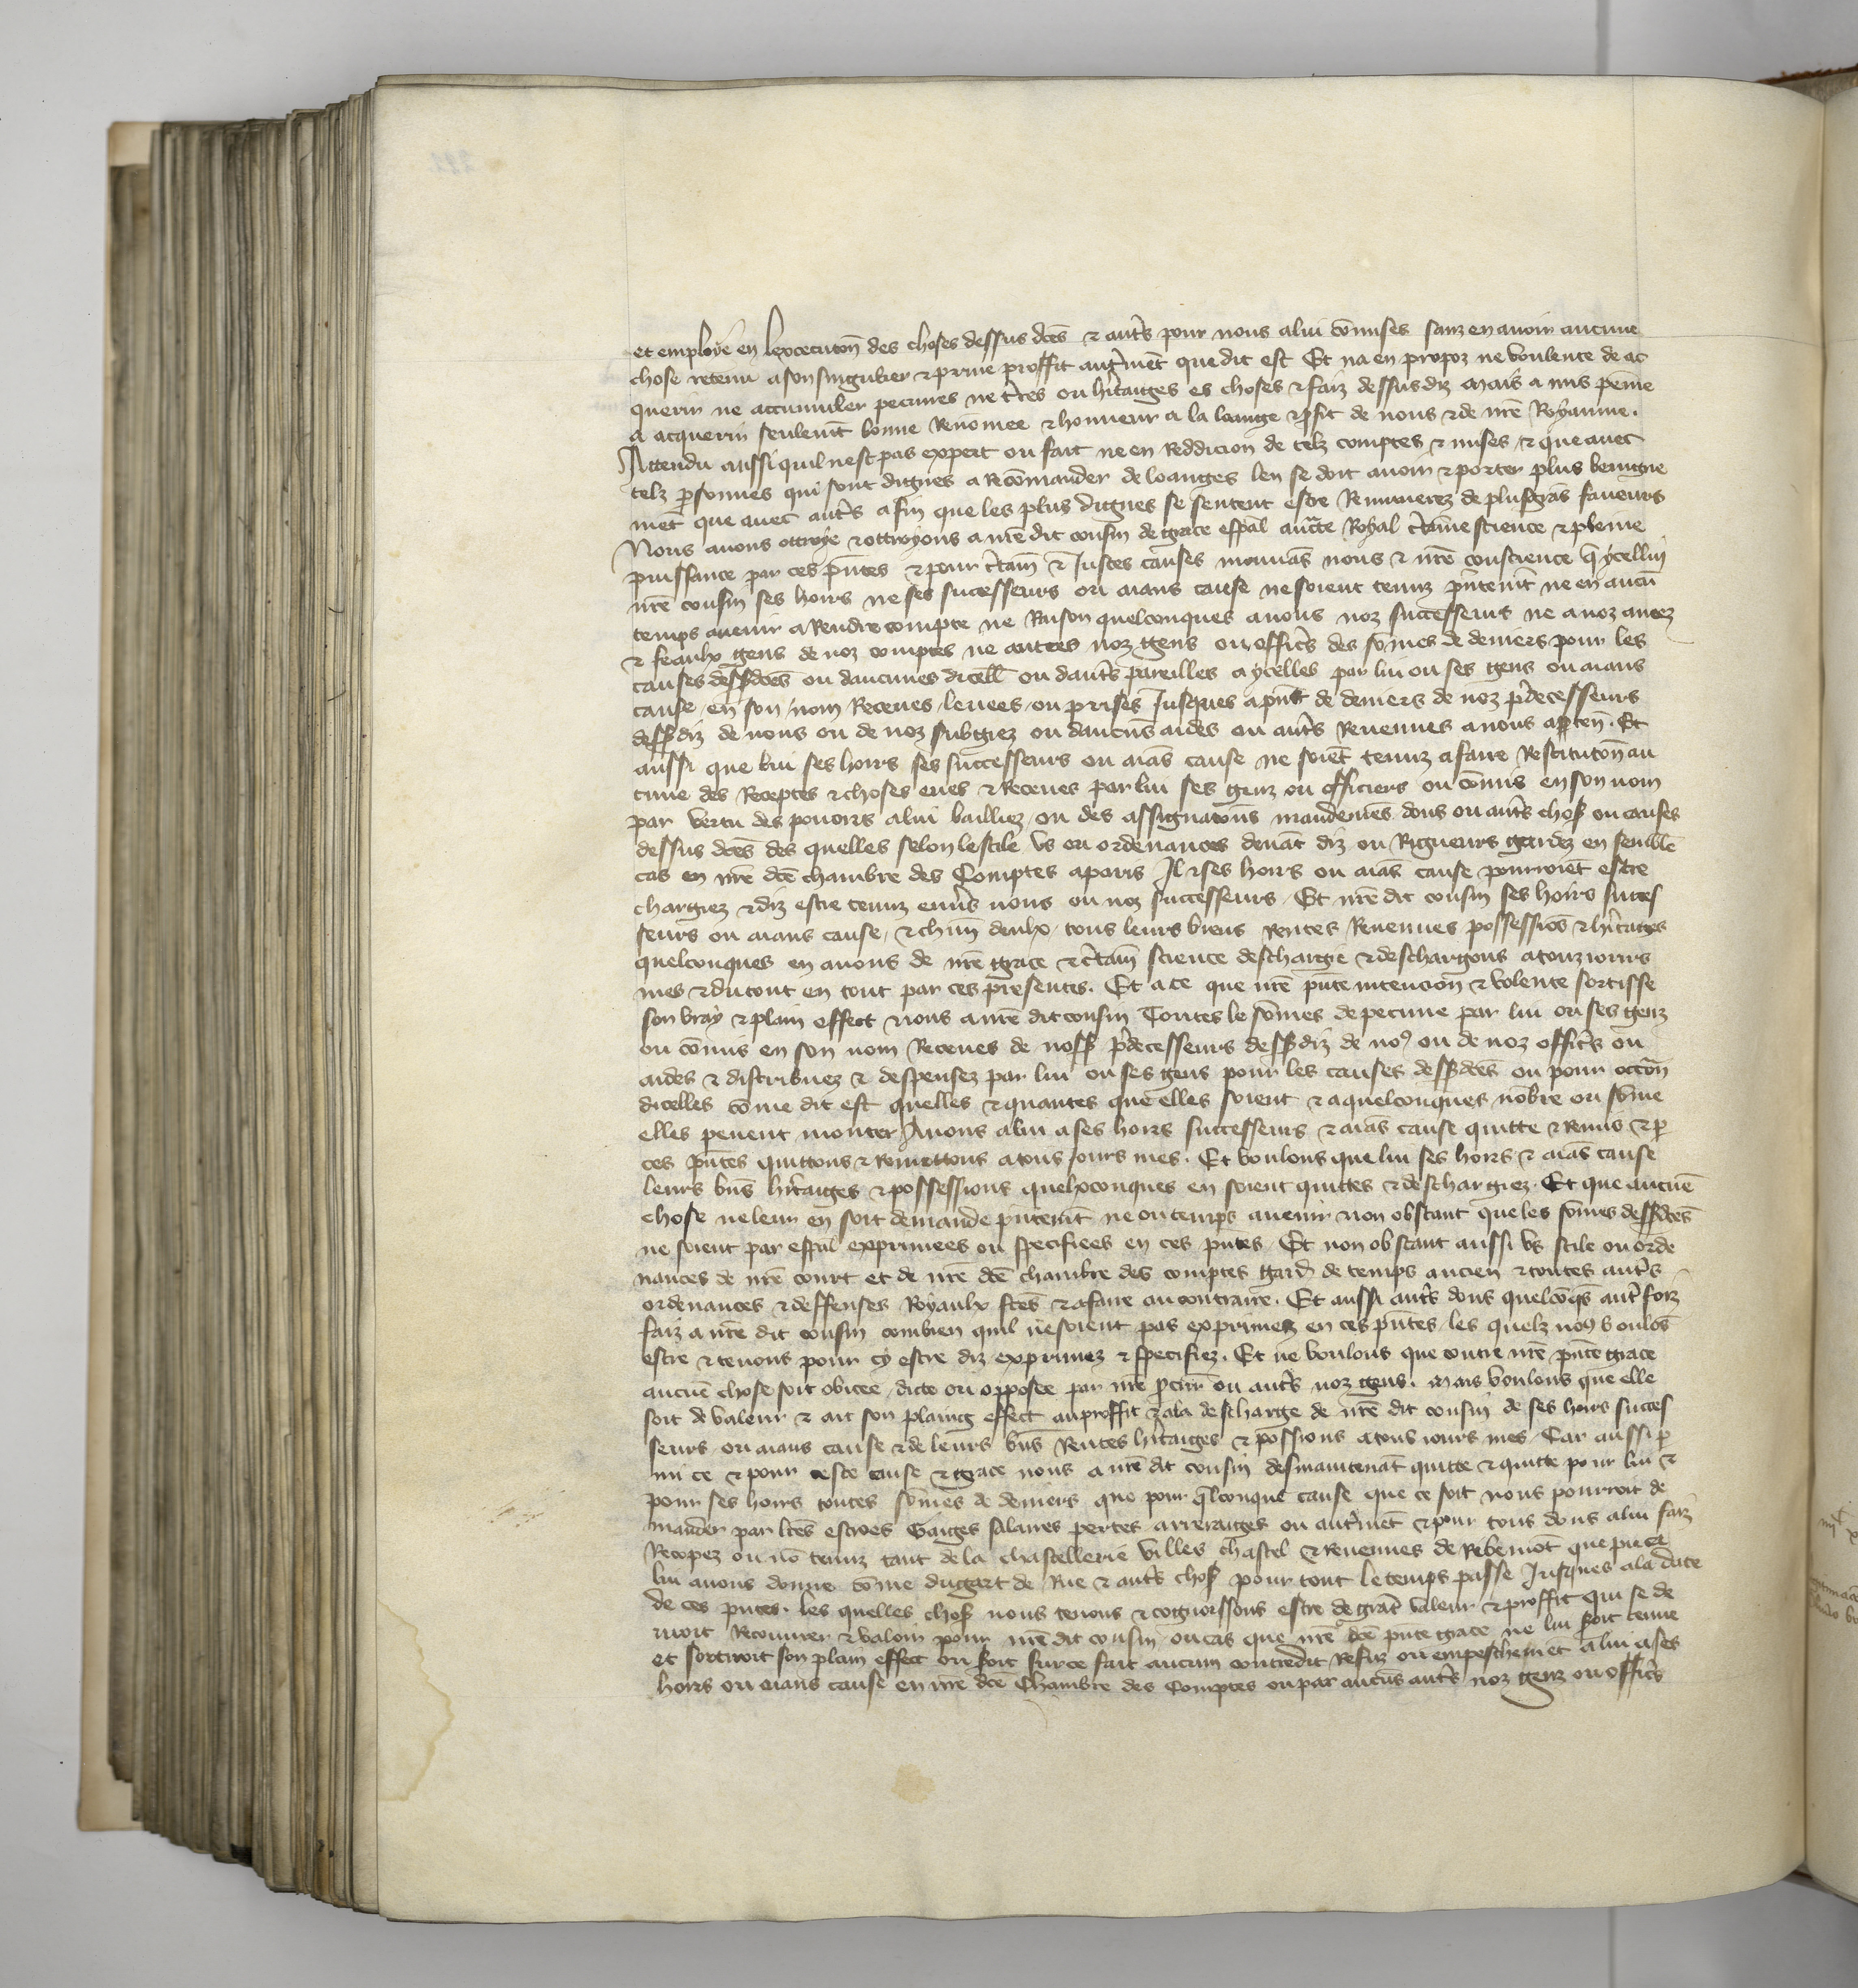 et employe en lexecucōn des choses dessus dc̄es & aut̾s pour nous a lui cōmises sanz en avoir aucune
chose retenu a son singulier & prive proffit autr̾mēt que dit est Et na en propoz ne voulente de ac
querir ne accumuler pecunes ne tr̾es ou hīt̾aiges es choses & faiz dessusdiz mais a mis peine
a acquerir seulemt̄ bonne Renōmee & honneur a la loange & ꝓfit de nous & de nr̄e Royaume.
Attendu aussi quil nest pas expert ou fait ne en Reddicion de telz comptes & mises & que avec
telz ꝑsonnes qui sont dignes a Recōmander de loanges len se doit avoir & porter plus benigne
mēt que avec aut̾s afin que les plus dignes se sentent estre Remunerez de plus grās faveurs
Nous avons ottroye & ottroyons a nr̄e dit cousin de grace esp̄al auct̄e Royal ct̾aine science & pleine
puissance par ces p̄ntes & pour ct̾ain̄ & Justes causes mouvās nous & nr̄e conscience q̄ ycellui
nr̄e cousin ses hoirs ne ses successeurs ou aians cause ne soient tenuz p̄ntemt̄ ne en aucū
temps avenir a Rendre compte ne Raison quelconques a nous noz successeurs ne a noz amez
& feaulx gens de noz comptes ne autres noz gens ou offic̾s des sōmes de deniers pour les
causes dessꝰdc̄es ou daucunes dicell̄ ou daut̾s pareilles a ycelles par lui ou ses gens ou aians
cause en son nom Receues levees ou prises Jusques a p̄nt de deniers de noz p̄decesseurs
dessꝰdiz de nous ou de noz subgiez ou daucūs aides ou aut̾s Revenues a nous aꝑten̄. Et
aussi que lui ses hoirs ses successeurs ou aiās cause ne soiēt tenuz a faire Restitucōn au
cune des Receptes & choses eues & Receues par lui ses genz ou officiers ou cōmis en son nom
par vertu des povoirs a lui bailliez ou des assignacōns mandemēs dons ou aut̾s choſ ou causes
dessus dc̄es des quelles selon lestile us ou ordenances devāt diz ou Rigueurs gardez en semblē
cas en nr̄e dc̄e chambre des Comptes a paris Il & ses hoirs ou aiās cause pourroiēt estre
chargiez & diz estre tenuz env̾s nous ou noz successeurs Et nr̄e dit cousin ses hoirs succes
seurs ou aians cause & chūn deulx tous leurs biens Rentes Revenues possessiōs & hīt̾aiges
quelconques en avons de nr̄e grace & ct̾ain̄ science deschargie & deschargons a touz jours
mes & du tout en tout par ces presentes. Et a ce que nr̄e p̄nte intencion & volente sortisse
son vray & plain effect nous a nr̄e dit cousin Toutes le sōmes de pecune par lui ou ses genz
ou cōmis en son nom Receues de nosꝰ p̄decesseurs dessꝰdiz de noꝰ ou de noz offic̾s ou
aides & distribuez & despensez par lui ou ses gens pour les causes dessꝰdc̄es ou pour occōn
dicelles cōme dit est quelles & quantes que elles soient & a quelconques nōbre ou sōme
elles pevent monter Avons a lui a ses hoirs successeurs & aiās cause quitte & Remis & ꝑ
ces p̄ntes quittons & Remettons a tous jours mes. Et voulons que lui ses hoirs & aiās cause
leurs bn̄s hīt̾aiges & possessions quelxconques en soient quittes & deschargiez. Et que aucun̄e
chose ne leur en soit demande p̄ntemt̄ ne ou temps avenir non obstant que les sōmes dessꝰdc̄es
ne soient par esp̄al exprimees ou specifiees en ces p̄ntes Et non obstant aussi us stile ou orde
nances de nr̄e court et de nr̄e dc̄e chambre des comptes gard̾ de temps ancien & toutes aut̾s
ordenances & deffenses Royaulx fc̄es & a faire au contraire. Et aussi aut̾s dons quelcōq̄s aut̾foiz
faiz a nr̄e dit cousin combien quil ne soient pas exprimez en ces p̄ntes les quelz noꝰ voulōs
estre & tenons pour cy estre diz exprimez & specifiez. Et ne voulons que contre nr̄e p̄nte grace
aucun̄e chose soit obicee dicte ou opposee par nr̄e ꝓcur̄ ou aut̾s noz gens. Mais voulons que elle
soit de valeur & ait son plaing effect au proffit & a la descharge de nr̄e dit cousin de ses hoirs succes
seurs ou aians cause & de leurs bn̄s Rentes hīt̾aiges & possions a tous jours mes Car aussi ꝑ
mi ce & pour ceste cause & grace nous a nr̄e dit cousin desmaintenāt quitte & quitte pour lui &
pour ses hoirs toutes sōmes de deniers que pour q̄lconque cause que ce soit nous pourroit de
mander par lr̄es escroes Gaiges salaires pertes arreraiges ou autr̾mēt & pour tous dons a lui faiz
Recopez ou nō tenuz tant de la chastellerie villes chastel & Revenues de Ribemōt que piecā
lui avons donne cōme du gart de Rue & aut̾s choſ pour tout le temps passe Jusques a la date
de ces p̄ntes. les quelles choſ nous tenons & cognoissons estre de grāt valeur & proffit qui se de
vroit Recouvrer & valoir pour nr̄e dit cousin ou cas que nr̄e dc̄e p̄nte grace ne lui soit tenue
et sortiroit son plain effect ou soit sur ce fait aucun contredit Refuz ou empeschemēt a lui a ses
hoirs ou aians cause en nr̄e dc̄e Chambre des Comptes ou par aucūs aut̾s noz genz ou offic̾s